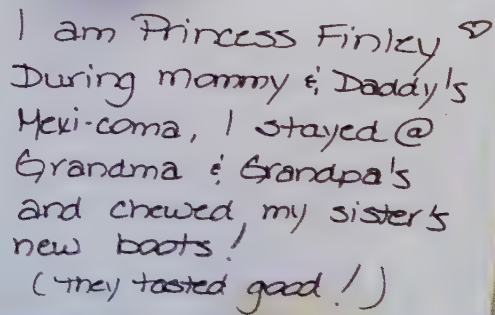 I am Princess Finley ♡
During mommy & Daddy's
Mexi-coma, I stayed @
Grandma & Grandpa's
and chewed my sister's
new boots!
(they tasted good!)